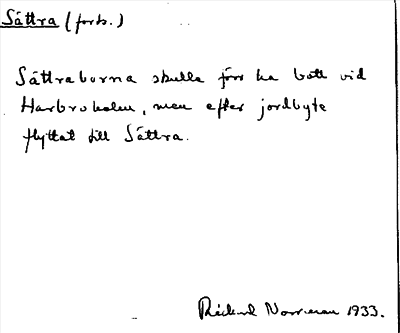 Sättra (forts.)
Sättraborna skulle förr ha bott vid
Harbroholm, men efter jordbyte
flyttat till Sättra.
Rickard Norrman 1933.